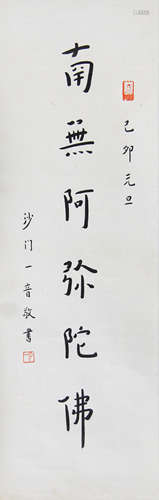 己卯元旦
南無阿弥陀佛
沙门一音敬書